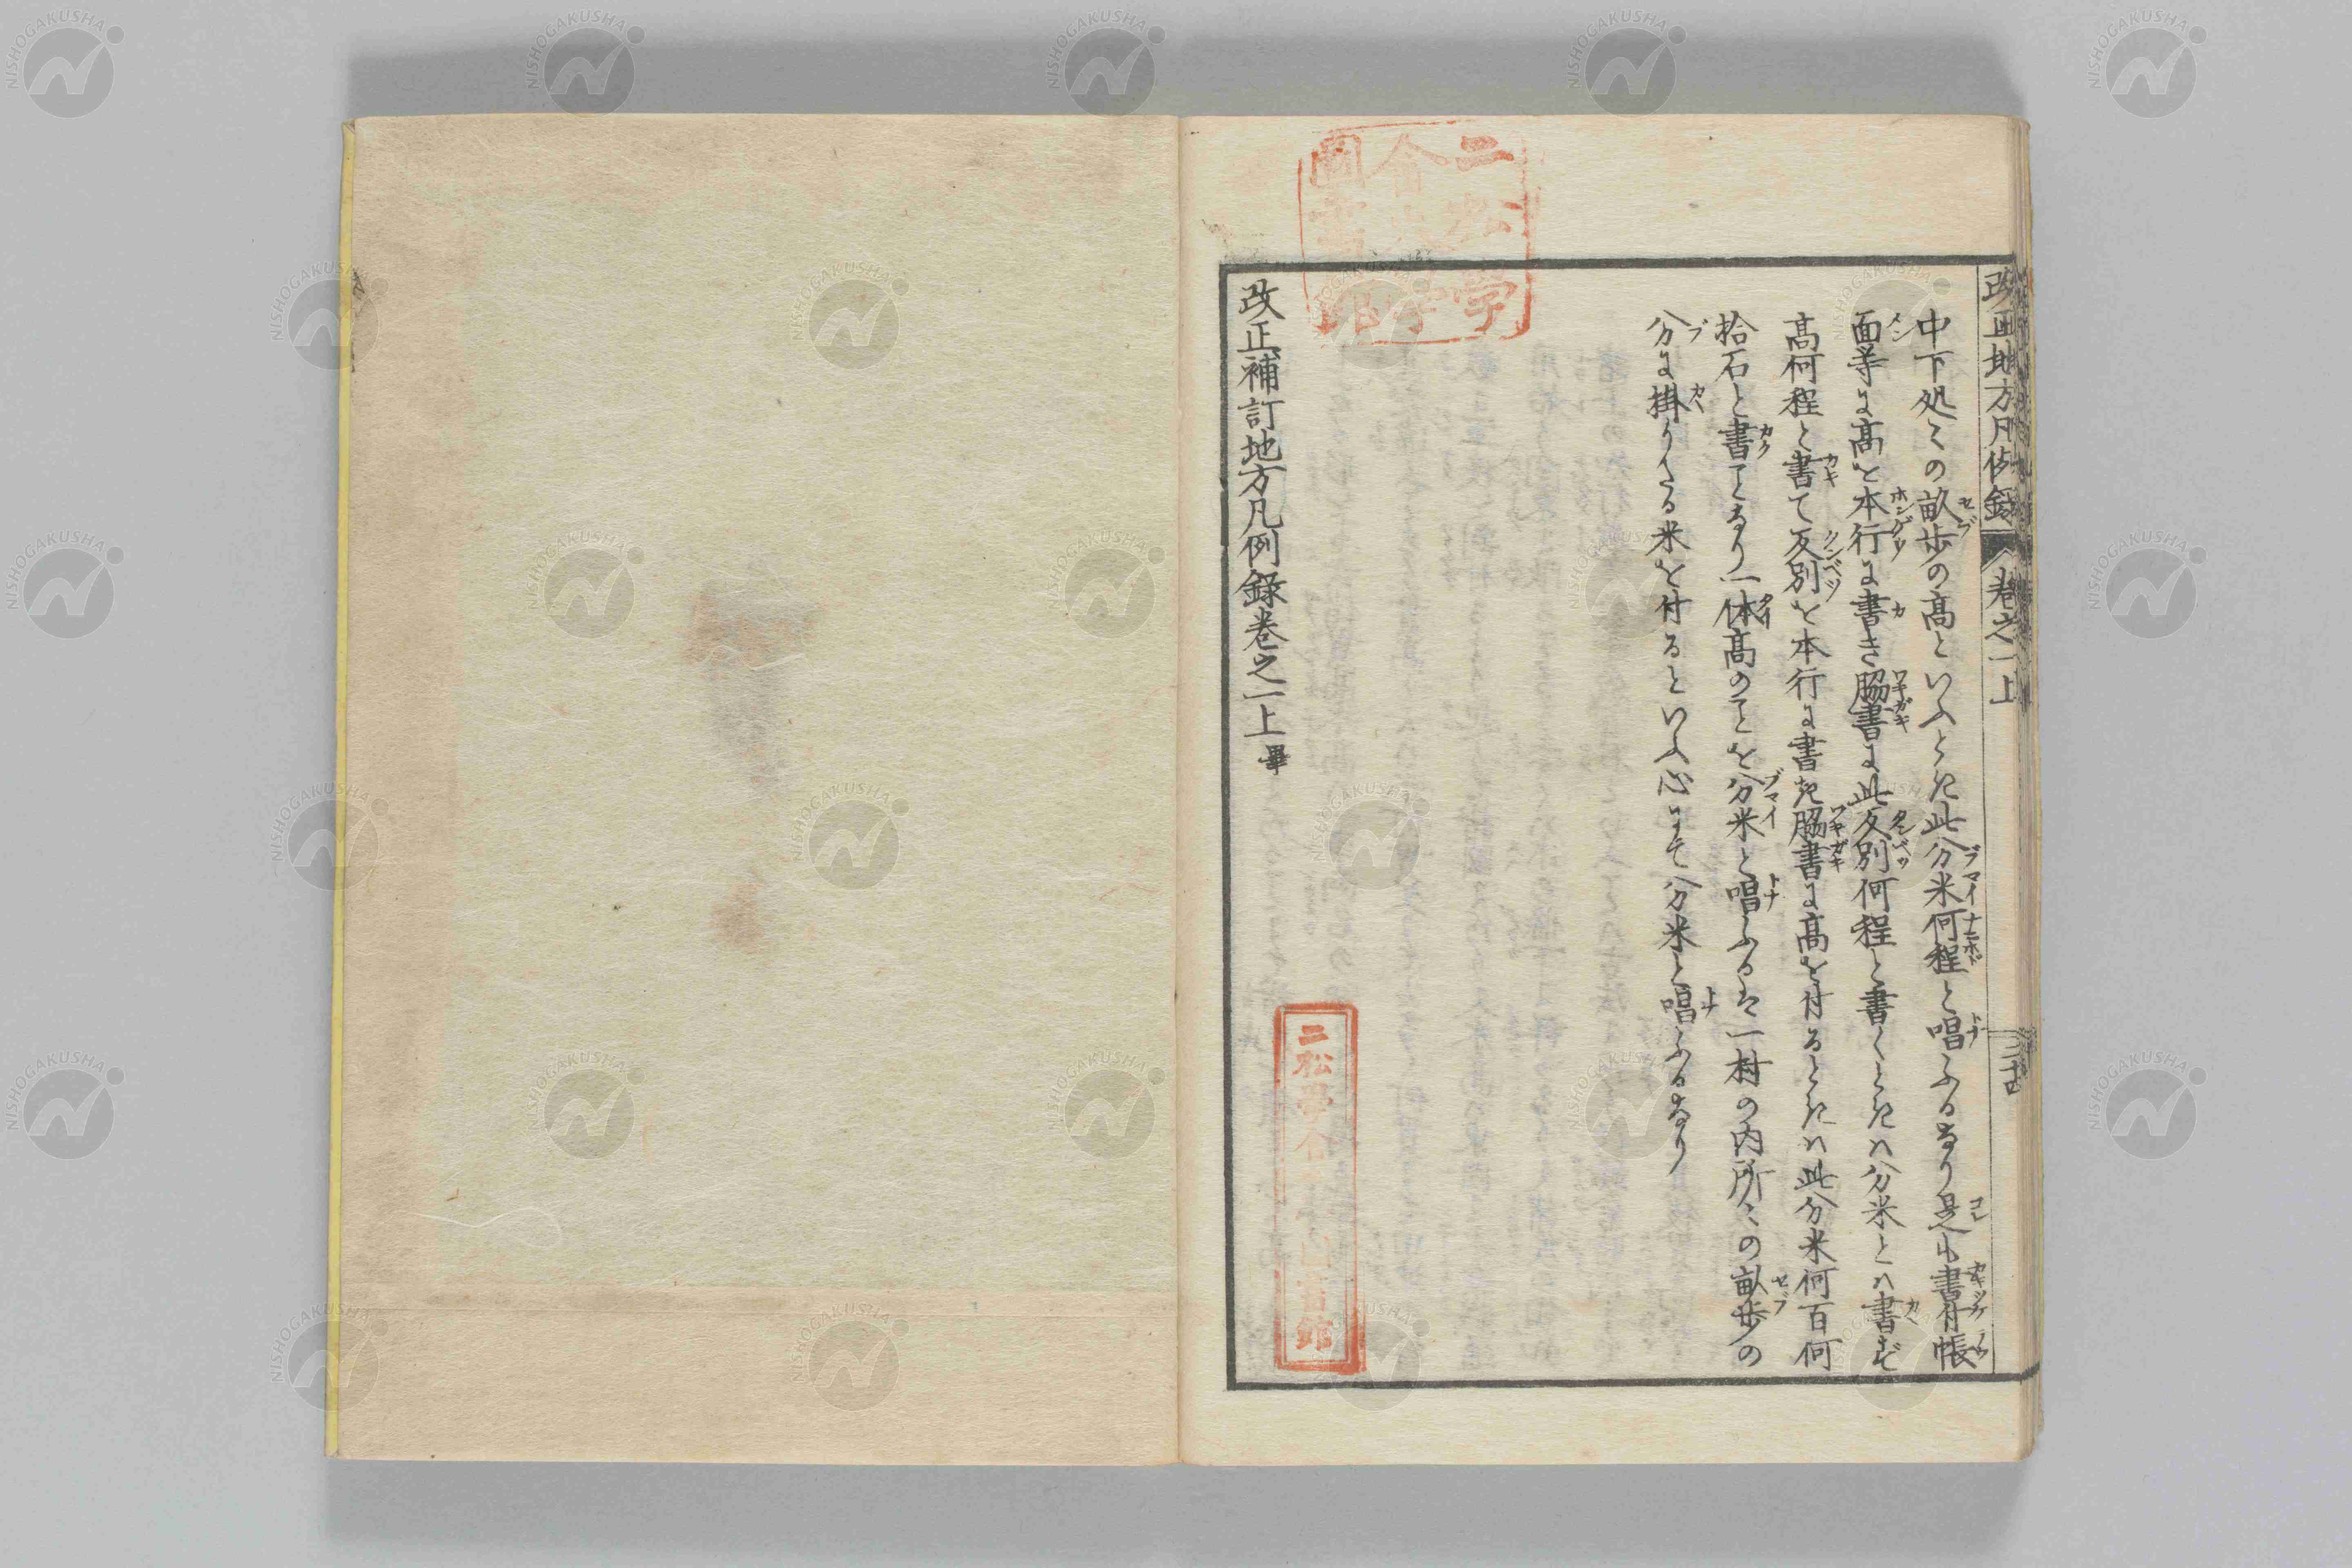 改正地方凡例録 巻之一上 三十五
中下処々の畝歩の高といふとき此分米何程と唱ふるなり是も書付帳
面等に高を本行に書き脇書に此反別何程と書くときハ分米とハ書ず
高何程と書て反別を本行に書き脇書に高を付るときハ此分米何百何
拾石と書ことなり一体高のことを分米と唱ふるは一村の内所々の畝歩の
分に掛りたる米を付るといふ心にて分米と唱ふるなり
改正補訂地方凡例録巻之一上畢
二松學
舎大學
圖書館印
二松學舎大學圖書館
NISHOGAKUSHA